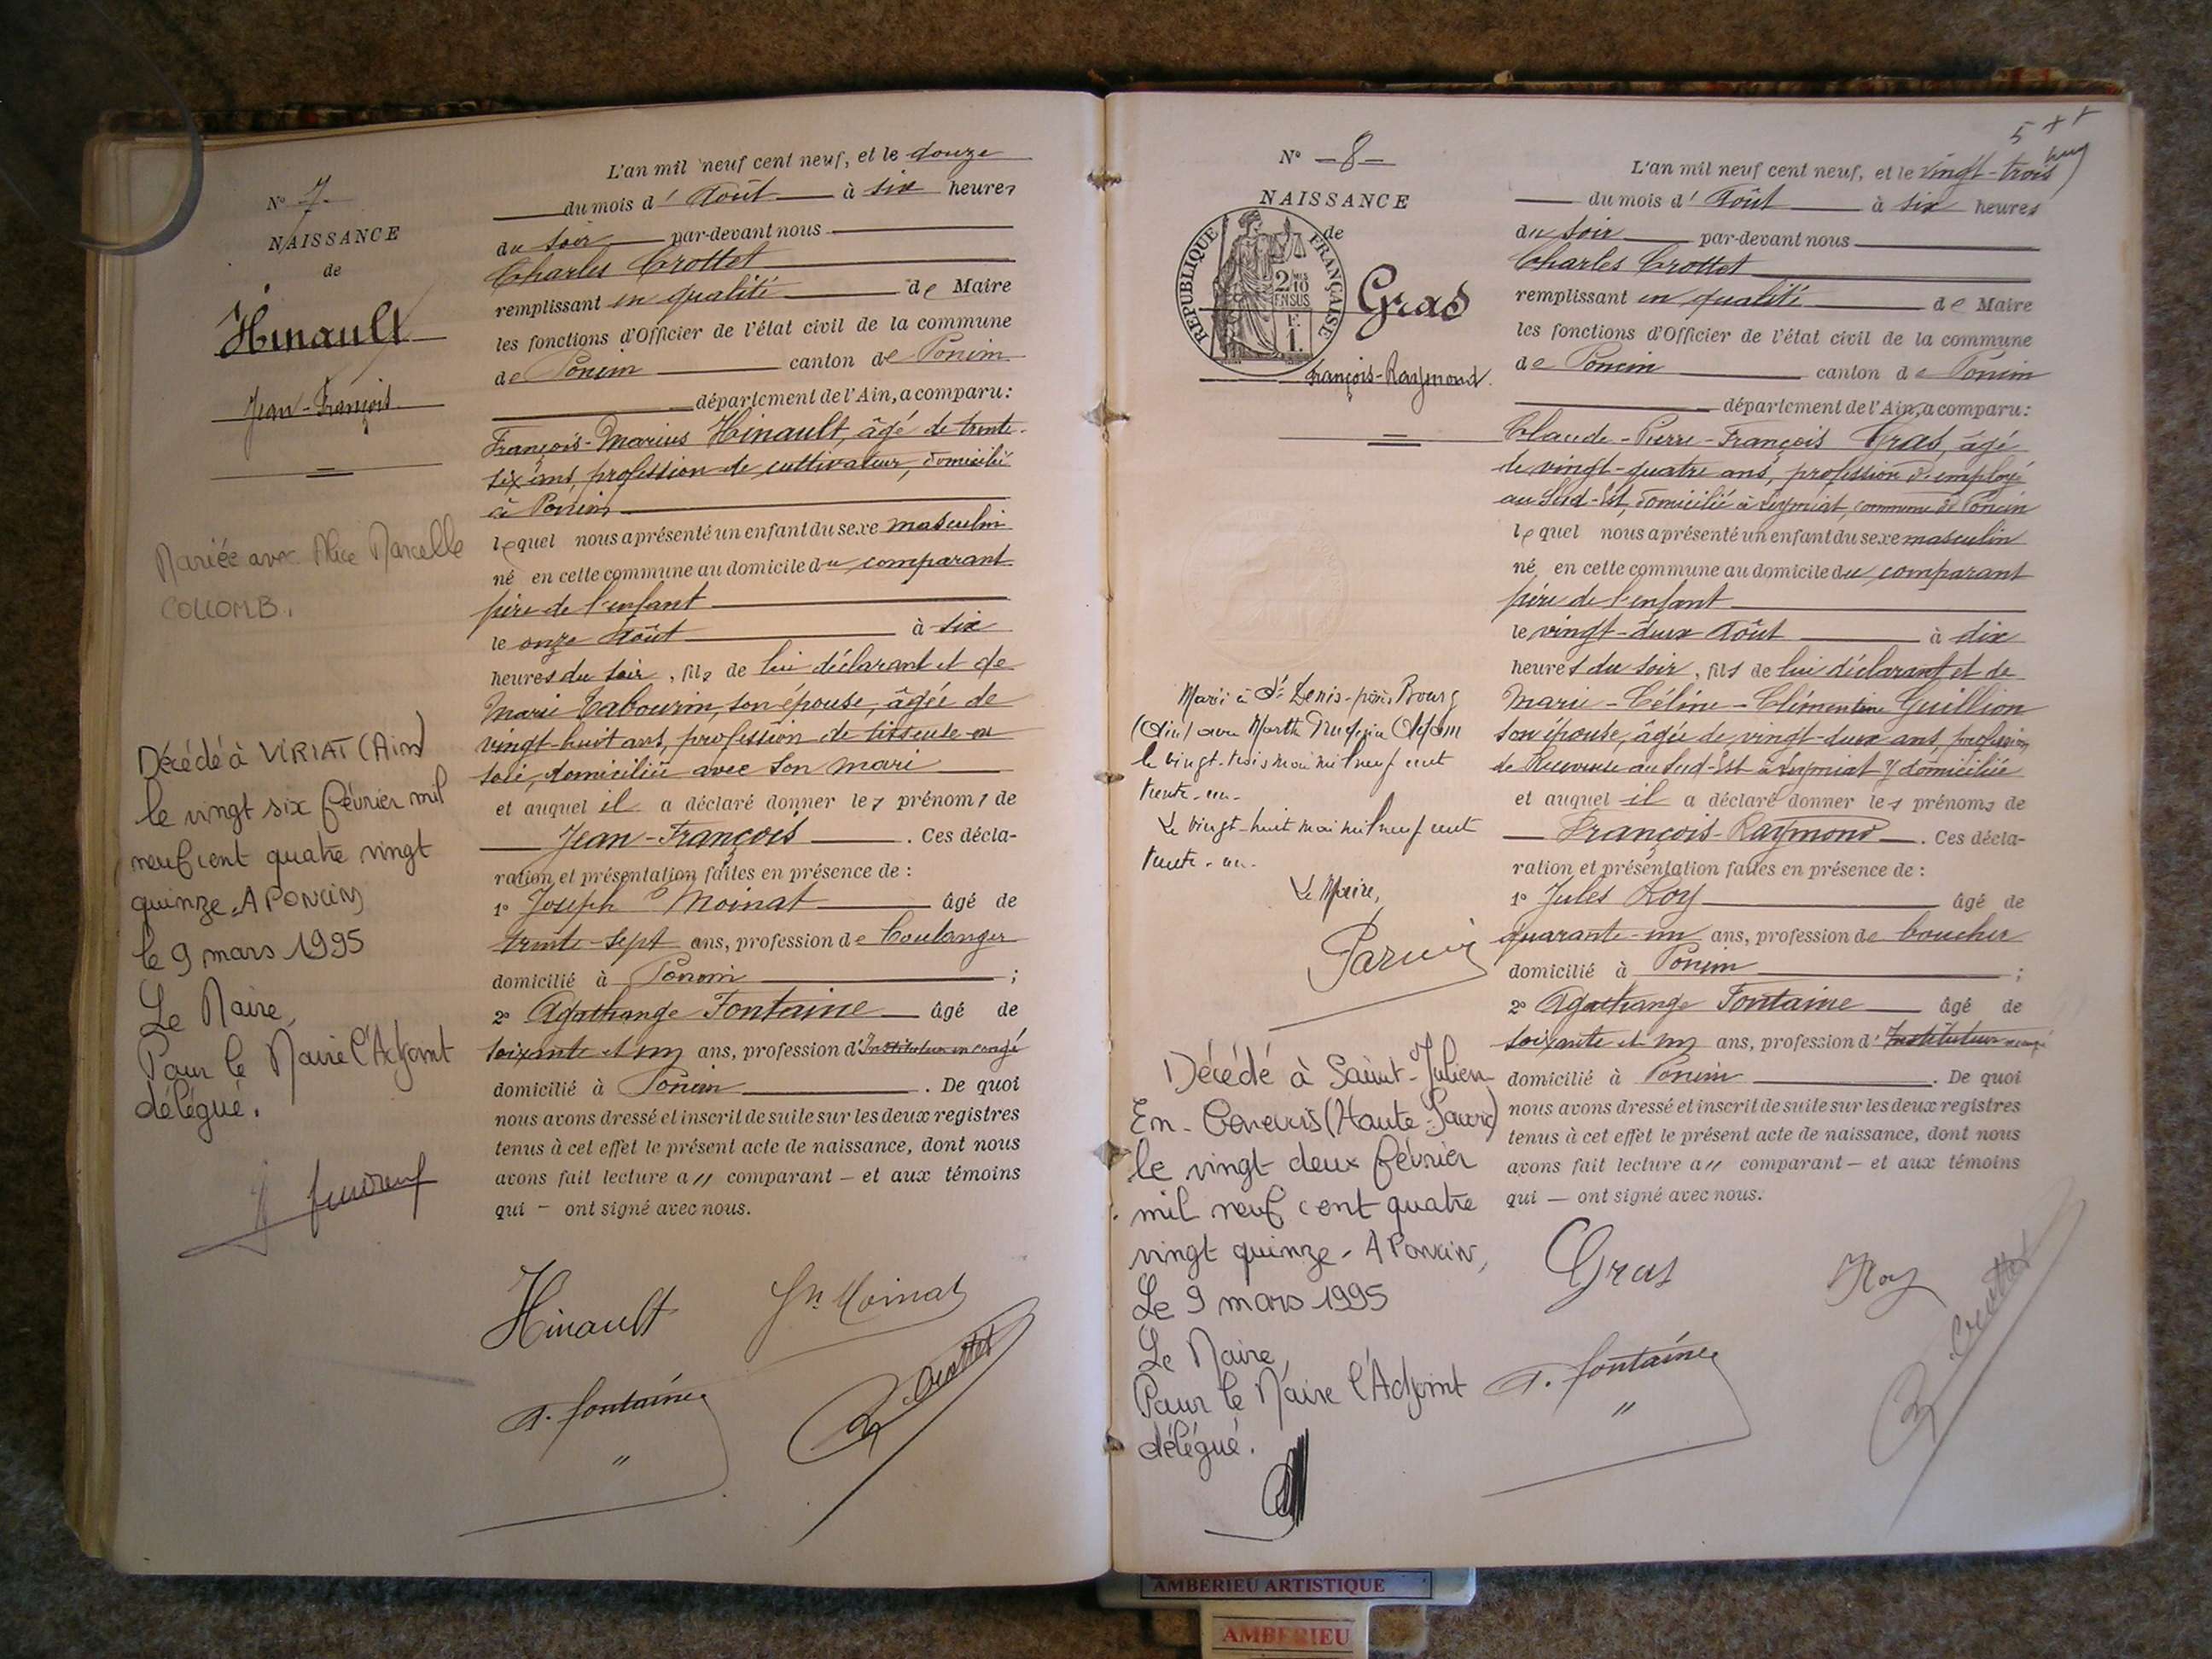 N° 7
NAISSANCE
de
Hinault
Jean-François
Mariée avec Alice Marcelle
COLLOMB.
Décédé à VIRIAT (Ain)
le vingt six février mil
neuf cent quatre vingt
quinze. A PONCIN
le 9 mars 1995
Le Maire,
Pour le Maire l'Adjoint
délégué.
L'an mil neuf cent neuf, et le douze
du mois d' Août à six heures
du soir par-devant nous
Charles Crottet
remplissant en qualité de Maire
les fonctions d'Officier de l'état civil de la commune
de Poncin canton de Poncin
département de l'Ain, a comparu :
François-Marius Hinault, âgé de trente-
six ans, profession de cultivateur, domicilié
à Poncin
lequel nous a présenté un enfant du sexe masculin
né en cette commune au domicile du comparant
père de l'enfant
le onze Août à six
heures du soir, fils de lui déclarant et de
Marie Tabourin, son épouse, âgée de
vingt-huit ans, profession de tisseuse en
soie, domiciliée avec son mari
et auquel il a déclaré donner les prénoms de
Jean-François . Ces décla-
ration et présentation faites en présence de :
1° Joseph Moinat âgé de
trente-sept ans, profession de boulanger
domicilié à Poncin ;
2° Agathange Fontaine âgé de
soixante et un ans, profession d'Instituteur en congé
domicilié à Poncin . De quoi
nous avons dressé et inscrit de suite sur les deux registres
tenus à cet effet le présent acte de naissance, dont nous
avons fait lecture au comparant — et aux témoins
qui — ont signé avec nous.
Hinault Jh Moinat
A. Fontaine Crottet
N° — 8 —
NAISSANCE
de
REPUBLIQUE FRANÇAISE
2/10 EN SUS
F. 1.
Gras
François-Raymond.
Marié à St Denis-près Bourg
(Ain) avec Marthe Adam
le vingt-trois mai mil neuf cent
trente-un.
Le vingt-huit mai mil neuf cent
trente-un.
Le Maire,
Décédé à Saint-Julien
En-Genevois (Haute-Savoie)
le vingt deux février
mil neuf cent quatre
vingt quinze - A Poncin,
Le 9 mars 1995
Le Maire,
Pour le Maire l'Adjoint
délégué.
5
L'an mil neuf cent neuf, et le vingt-trois
du mois d' Août à six heures
du soir par-devant nous
Charles Crottet
remplissant en qualité de Maire
les fonctions d'Officier de l'état civil de la commune
de Poncin canton de Poncin
département de l'Ain, a comparu :
Claude-Pierre-François Gras, âgé
de vingt-quatre ans, profession d'employé
au Sud-Est, domicilié à Leymiat, commune de Poncin
lequel nous a présenté un enfant du sexe masculin
né en cette commune au domicile du comparant
père de l'enfant
le vingt-deux Août à dix
heures du soir, fils de lui déclarant et de
Marie-Céline-Clémentine Guillion
son épouse, âgée de vingt-deux ans, profession
de Receveuse au Sud-Est à Leymiat y domiciliée
et auquel il a déclaré donner les prénoms de
François-Raymond . Ces décla-
ration et présentation faites en présence de :
1° Jules Roy âgé de
quarante-un ans, profession de boucher
domicilié à Poncin ;
2° Agathange Fontaine âgé de
soixante et un ans, profession d'Instituteur en congé
domicilié à Poncin . De quoi
nous avons dressé et inscrit de suite sur les deux registres
tenus à cet effet le présent acte de naissance, dont nous
avons fait lecture au comparant — et aux témoins
qui — ont signé avec nous.
Gras Roy
A. Fontaine Crottet
AMBERIEU ARTISTIQUE
AMBERIEU